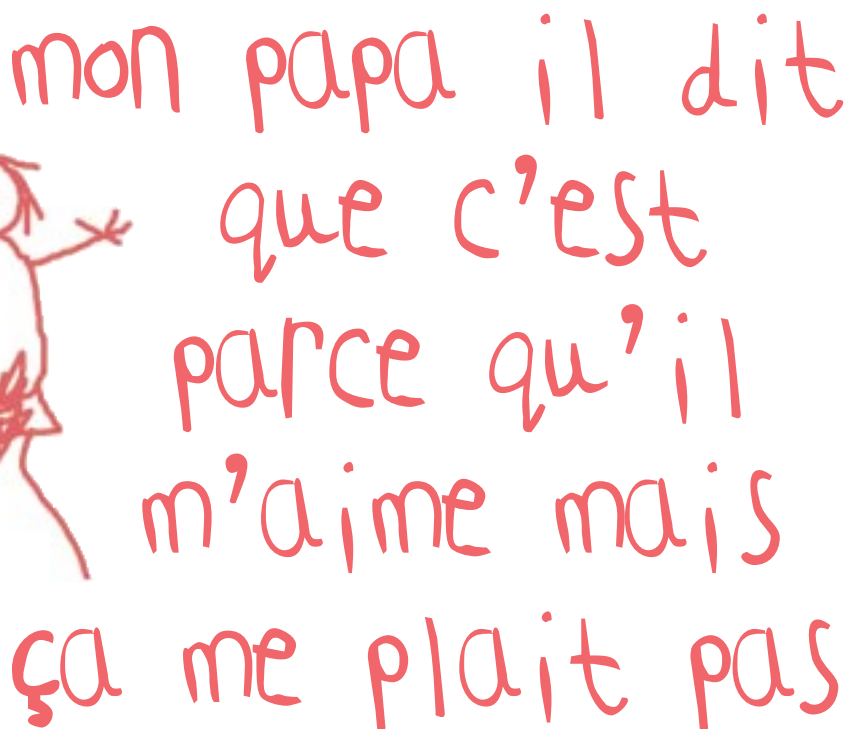 mon papa il dit
que c'est
parce qu'il
m'aime mais
ça me plait pas